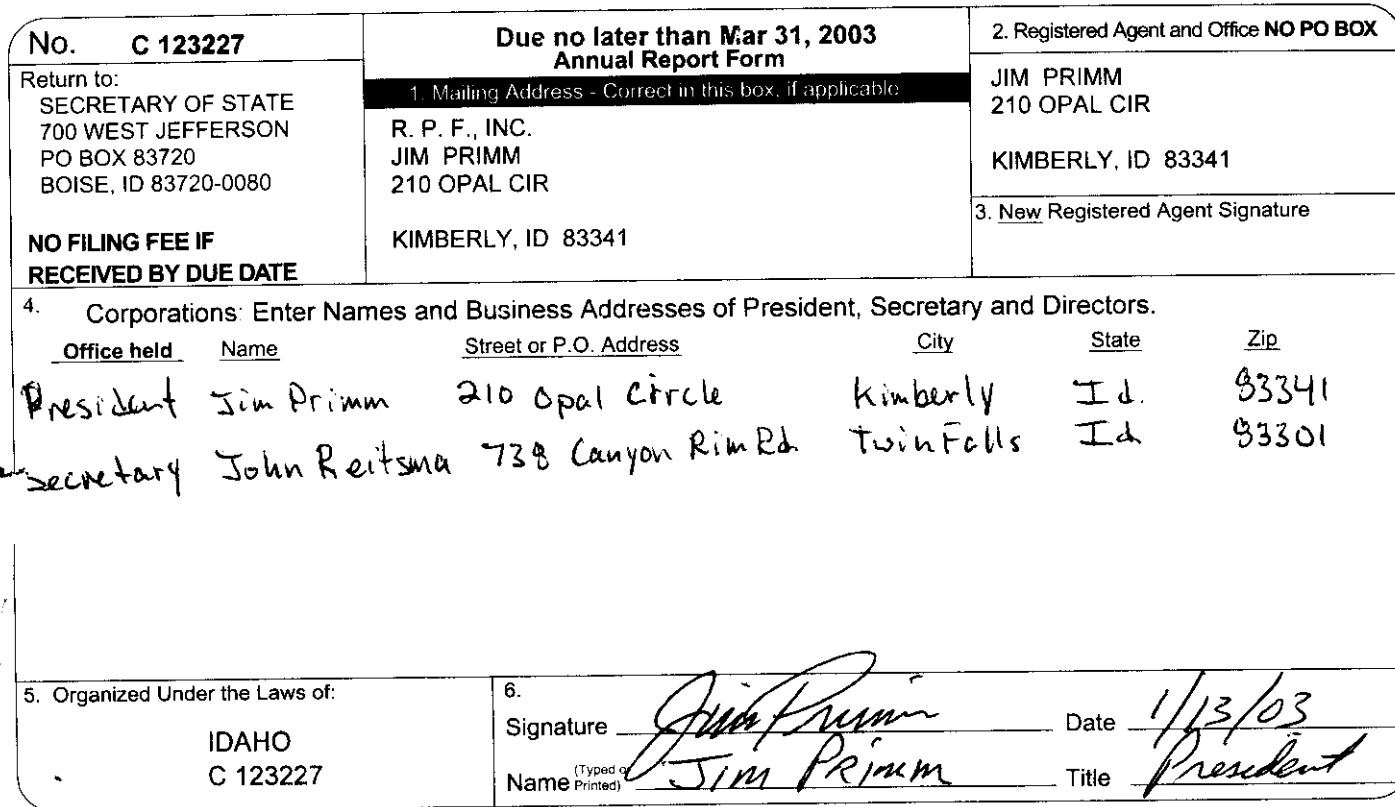 No. C 123227
Return to:
SECRETARY OF STATE
700 WEST JEFFERSON
PO BOX 83720
BOISE, ID 83720-0080
NO FILING FEE IF
RECEIVED BY DUE DATE
Due no later than Mar 31, 2003
Annual Report Form
1. Mailing Address - Correct in this box, if applicable
R. P. F., INC.
JIM PRIMM
210 OPAL CIR
KIMBERLY, ID 83341
2. Registered Agent and Office NO PO BOX
JIM PRIMM
210 OPAL CIR
KIMBERLY, ID 83341
3. New Registered Agent Signature
4. Corporations: Enter Names and Business Addresses of President, Secretary and Directors.
Office held Name Street or P.O. Address City State Zip
President Jim Primm 210 Opal Circle Kimberly Id. 83341
Secretary John Reitsma 738 Canyon Rim Rd. Twin Falls Id 83301
5. Organized Under the Laws of:
IDAHO
C 123227
6.
Signature Jim Primm Date 1/13/03
Name (Typed or Printed) Jim Primm Title President